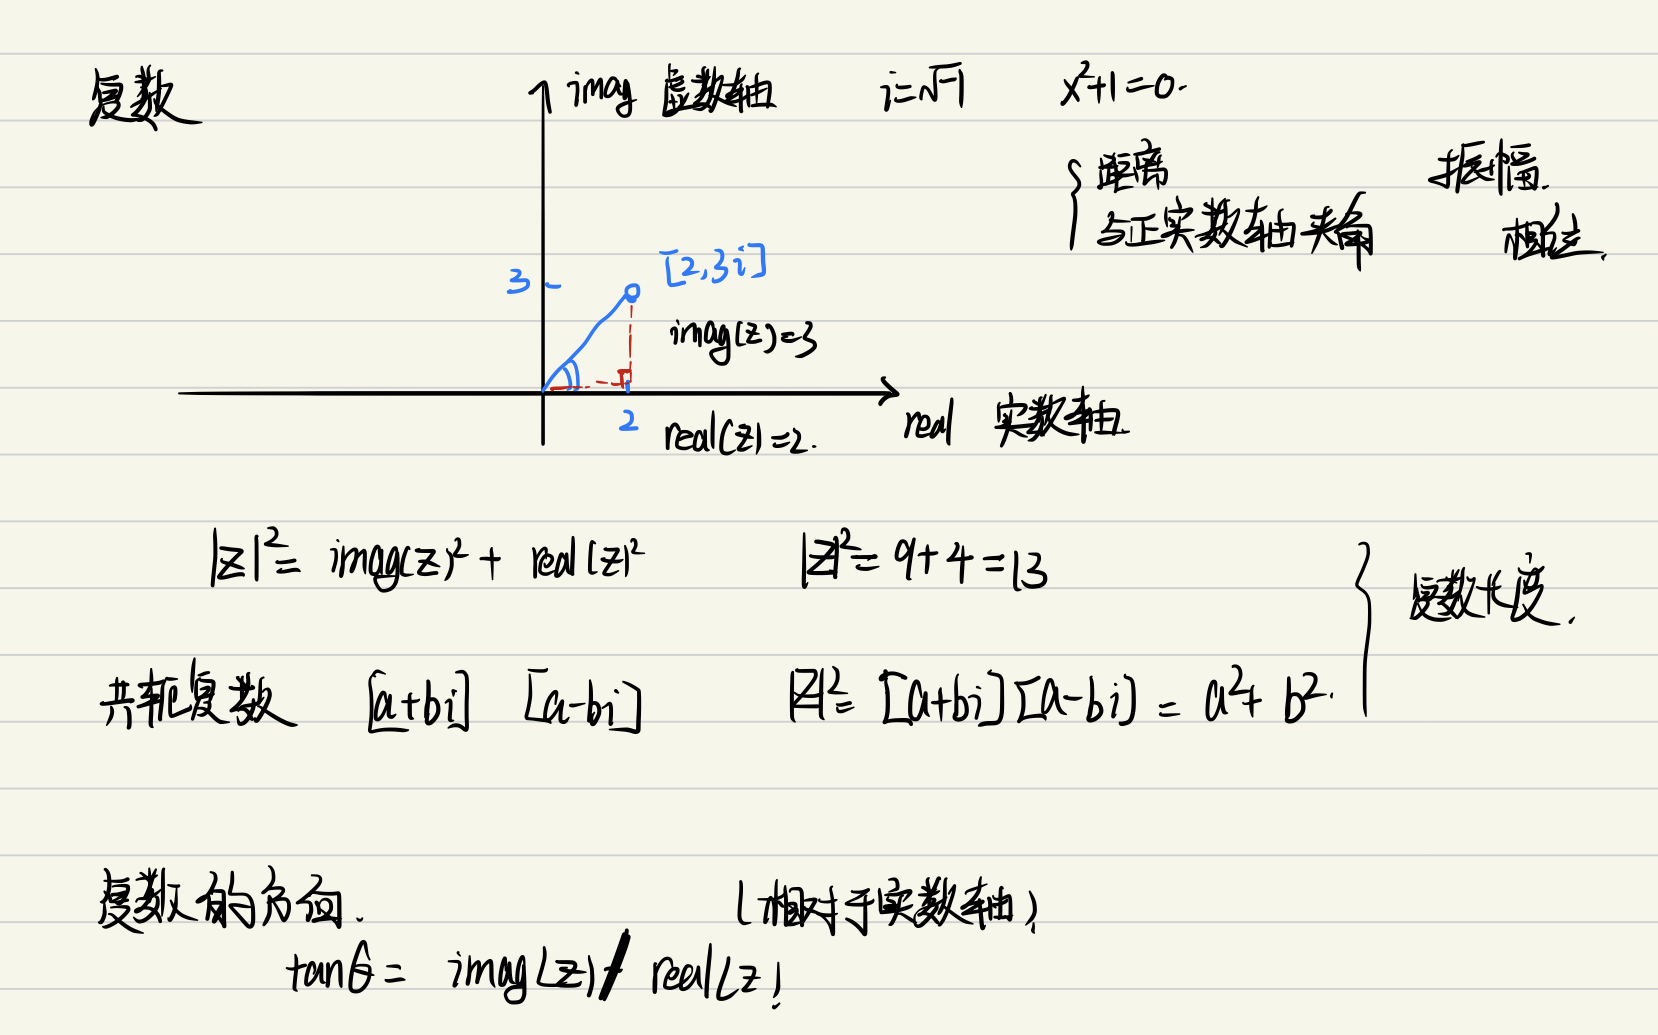 复数
imag 虚数轴 i=√-1 x²+1=0.
距离 振幅.
与正实数轴夹角 相位.
3 [2,3i]
imag(z)=3
2 real(z)=2. real 实数轴.
|z|²= imag(z)²+ real(z)² |z|²= 9+4=13
复数长度.
共轭复数 [a+bi] [a-bi] |z|²= [a+bi][a-bi] = a²+b².
复数的方向. (相对于实数轴)
tanθ= imag(z)/real(z)